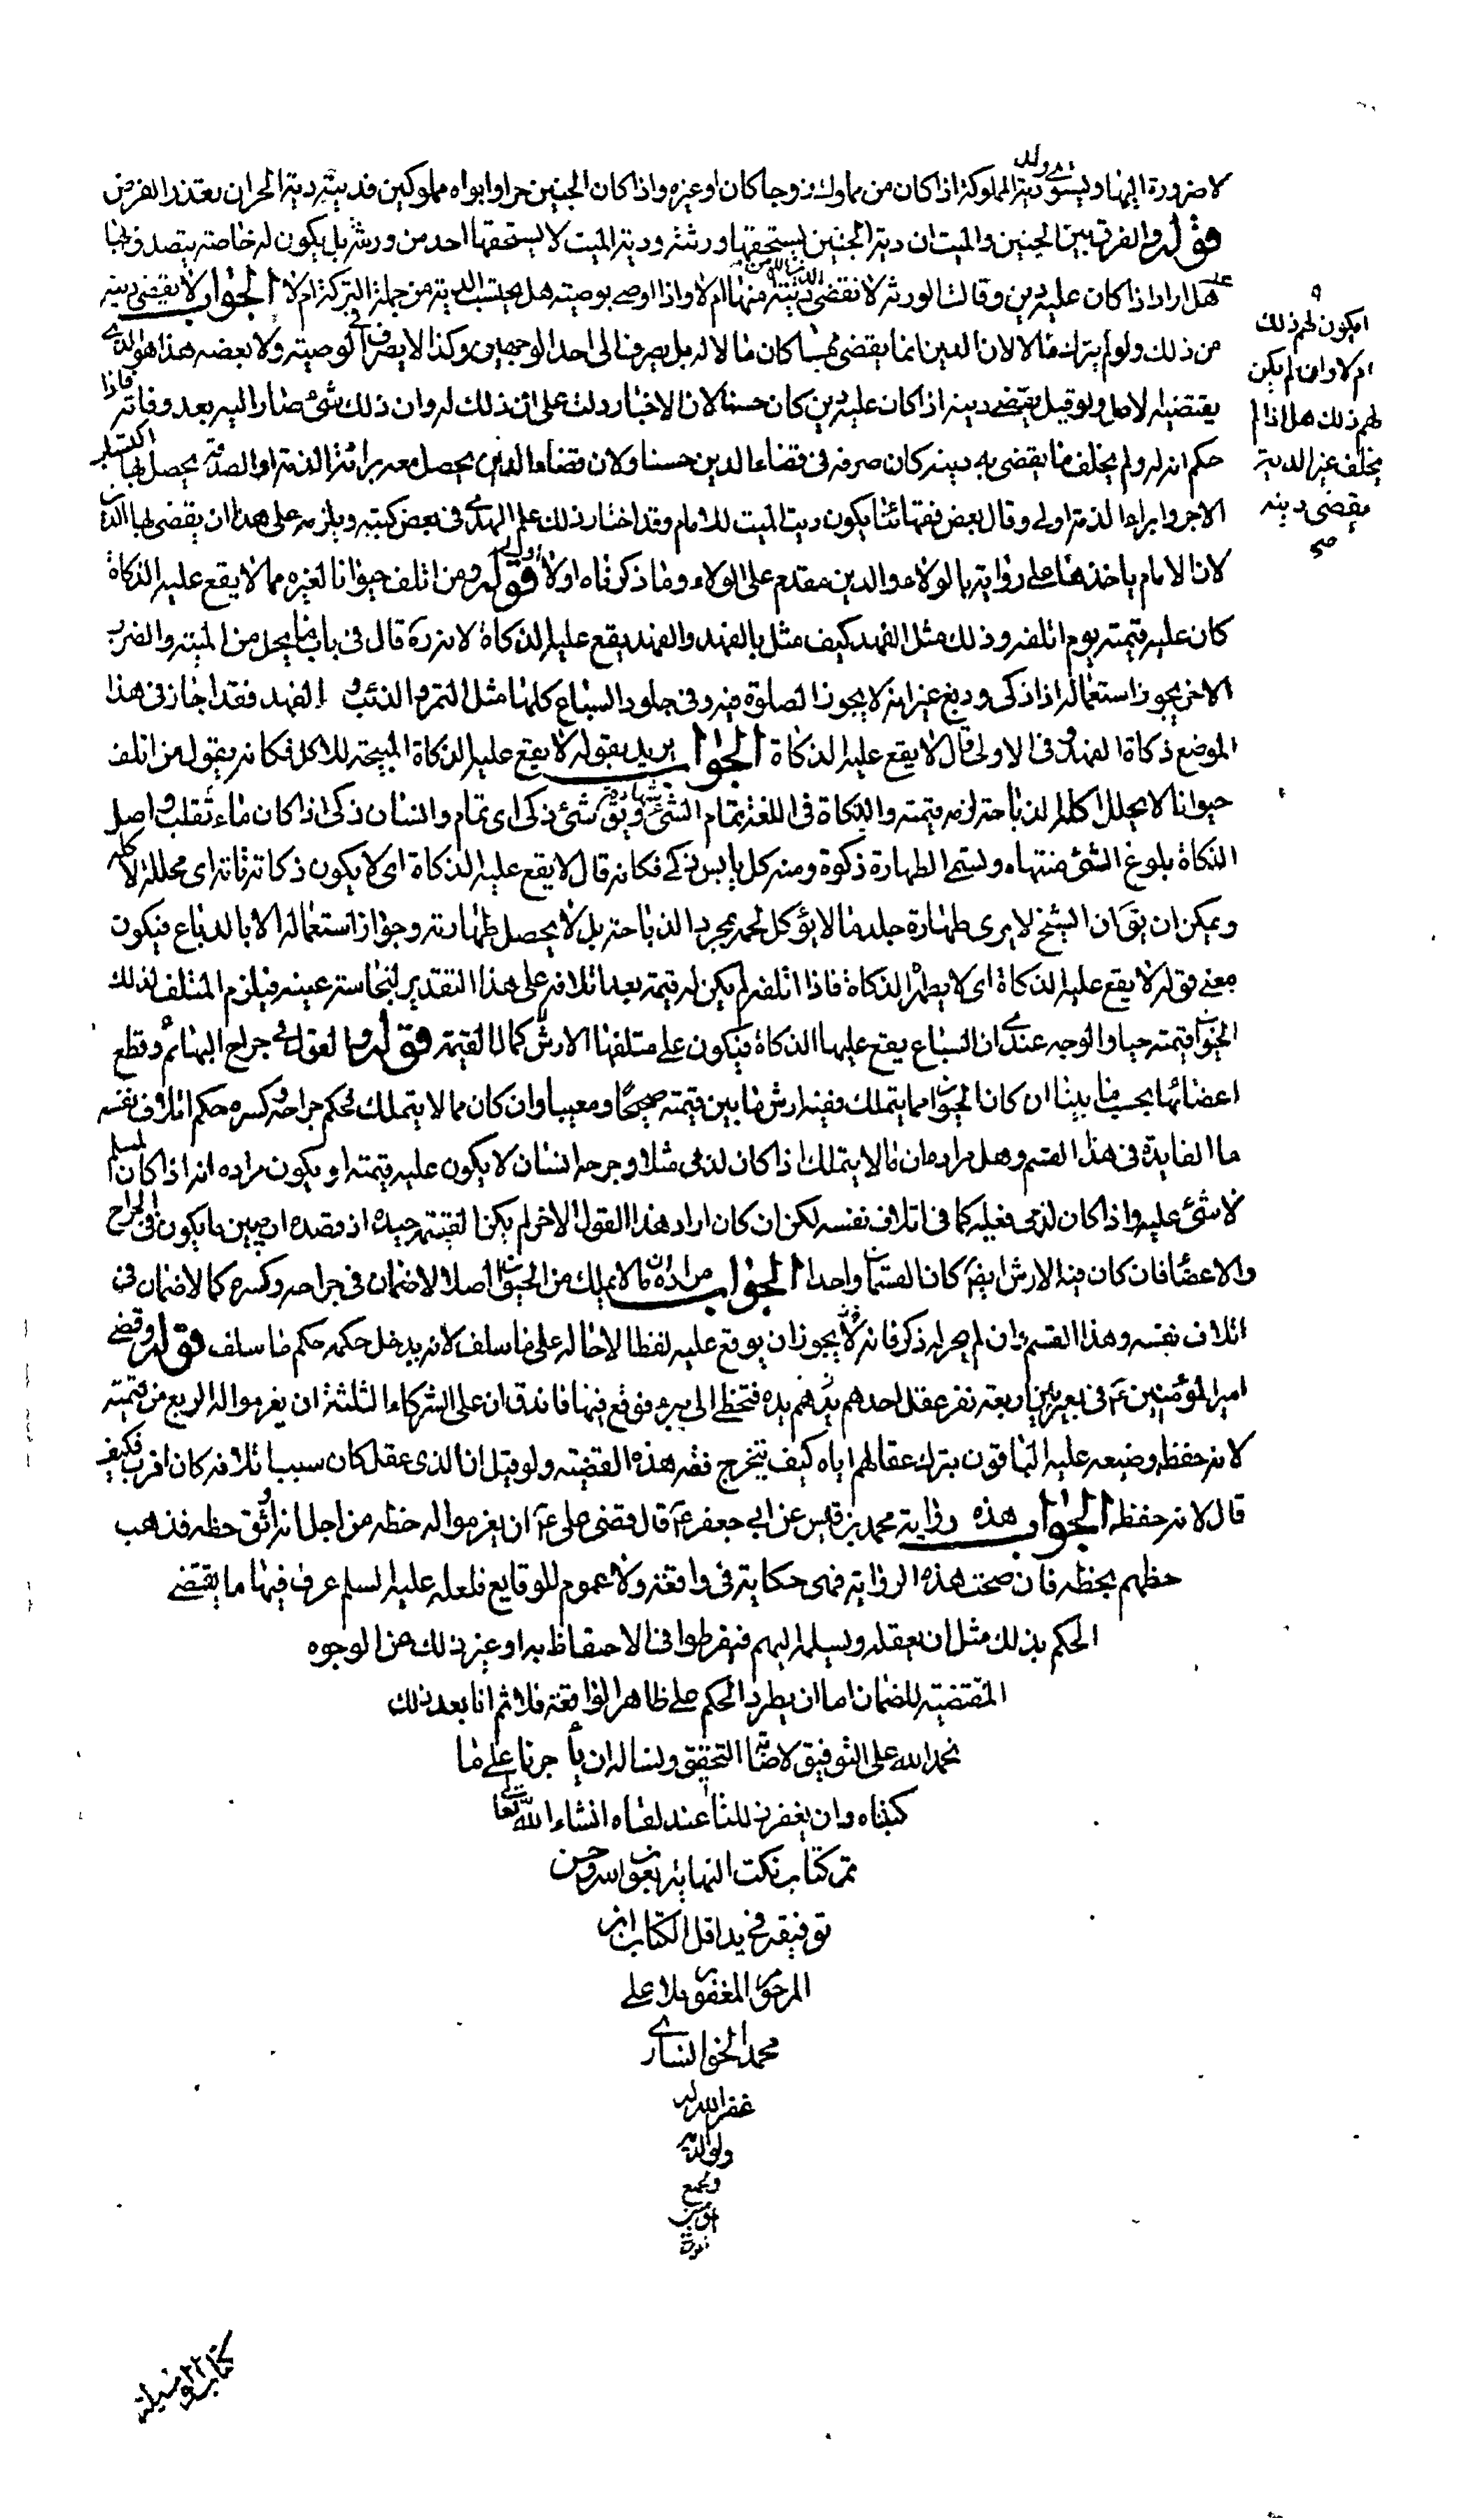 لا ضرورة اليها ويستوي دية ولد المملوكة اذا كان من مملوك زوجا كان او غيره واذا كان الجنين حرا وابواه مملوكين فديته دية الحر ان تعتذر الفرض
قوله والفرق بين الجنين والميت ان دية الجنين يستحقها ورثته ودية الميت لا يستحقها احد من ورثته بل يكون له خاصة يتصدق بها
عنه هل اراد اذا كان عليه دين وقالت الورثة لا نقضي دينه منها ام لا واذا اوصى بوصية هل يحتسب الدية من جملة التركة ام لا الجواب لا يقضي دينه
من ذلك ولو لم يترك مالا لان الدين انما يقضى مما كان مالا له بل يصرفنا الى احد الوجهين وكذا لا يصرف في الوصية ولا بعضه هذا هو الذي
يقتضيه الاصل ولو قيل يقضي دينه اذا كان عليه دين كان حسنا لان الاخبار دلت على ان ذلك له وان ذلك شئ صار اليه بعد وفاته فاذا
حكم انه له ولم يخلف ما يقضى به دينه كان صرفه في قضاء الدين حسنا ولان قضاء الدين يحصل معه براءة الذمة او الصدقة يحصل بها اكتساب
الاجر وابراء الذمة اولى وقال بعض فقهائنا يكون دية الميت للامام وقد اختار ذلك علم الهدى في بعض كتبه ويلزمه على هذا ان يقضى بها الدين
لان الامام ياخذها على رواية بالولاء والدين مقدم على الولاء وما ذكرناه اولا اولى قوله ومن اتلف حيوانا لغيره مما لا يقع عليه الذكاة
كان عليه قيمته يوم اتلفه وذلك مثل الفهد كيف مثل بالفهد والفهد يقع عليه الذكاة لانه ره قال في باب ما يحل من الميتة والضرب
الاخر يجوز استعماله اذا ذكى ودبغ غير انه لا يجوز الصلوة فيه وفي جلود السباع كلها مثل النمر والذئب و الفهد فقد اجاز في هذا
الموضع ذكاة الفهد وفي الاولى قال لا يقع عليه الذكاة الجواب يريد بقوله لا يقع عليه الذكاة المبيحة للاكل فكانه يقول من اتلف
حيوانا لا يحلل اكله الذباحة لزمه قيمته والذكاة في اللغة تمام الشئ وشهادته ويق شئ ذكى اى تمام وانسان ذكى اذا كان ماء ثقلب واصل
الذكاة بلوغ الشئ منتهاه ولستم الطهارة ذكوة ومنه كل يابس ذكي فكانه قال لا يقع عليه الذكاة اى لا يكون ذكاته ذكاة اى محللة لاكله
ويمكن ان يق ان الشيخ لا يرى طهارة جلد ما لا يؤكل لحمه بمجرد الذباحة بل لا يحصل طهارته وجواز استعماله الا بالدباغ فيكون
معنى قوله لا يقع عليه الذكاة اى لا يطهره الذكاة فاذا اتلفه لم يكن له قيمة بعد اتلافه على هذا التقدير لنجاسة عينه فيلزم المتلف لذلك
الحيوان قيمته حيا والوجه عندي ان السباع يقع عليها الذكاة فيكون على متلفها الارش لا كمال القيمة قوله والقول في جراح البهائم وقطع
اعضائها بحسب ما بينا ان كان الحيوان مما يتملك ففيه ارش ما بين قيمته صحيحا ومعيبا وان كان مما لا يتملك فحكم جراحه وكسره حكم اتلاف نفسه
ما الفايدة في هذا القسم وهل مراده ان ما لا يتملك اذا كان لذمي مثلا وجرحه انسان لا يكون عليه قيمته او يكون مراده انه اذا كان لمسلم
لا شئ عليه واذا كان لذمي فعليه كما في اتلاف نفسه لكن ان كان اراد هذا القول الاخر لم يكن القسمة جيدة اذ قصده ان يبين ما يكون في الجراح
والاعضاء فان كان فيه الارش ايض كان القسمان واحدا الجواب مراده ان ما لا يملك من الحيوان اصلا لا ضمان في جراحه وكسره كما لا ضمان في
اتلاف نفسه وهذا القسم وان لم يجر له ذكر فانه لا يجوز ان يوقع عليه لفظا لاحاله على ما سلف لانه يدخل حكمه حكم ما سلف قوله وقضى
امير المؤمنين ع في بعير بين اربعة نفر عقل احدهم يده فتخطى الى بئر فوقع فيها فاندق ان على الشركاء الثلثة ان يغرموا له الربع من قيمته
لانه حفظ وضيعه عليه الباقون بترك عقالهم اياه كيف يتخرج فقه هذه القضية ولو قيل ان الذي عقل كان سبب اتلافه كان اقرب فكيف
قال لانه حفظ الجواب هذه رواية محمد بن قيس عن ابي جعفر ع قال قضى علي ع ان يغرموا له حظه من اجل انه اوثق حظه فذهب
حظهم بحظه فان صحت هذه الرواية فهي حكاية في واقعة ولا عموم للوقايع فلعله عليه السلم عرف فيها ما يقتضى
الحكم بذلك مثل ان يعقله ويسلمه اليهم فيفرطوا في الاحتفاظ به او غير ذلك من الوجوه
المقتضية للضمان اما ان يطرد الحكم على ظاهر الواقعة فلا ثم انا بعد ذلك
نحمد الله على التوفيق لاصابة التحقيق ونساله ان يأجرنا على ما
كتبناه وان يغفر زللنا عند لقاه انشاء الله تعالى
تم كتاب نكت النهاية بعون الله وحسن
توفيقه في يد اقل الكتاب ابن
المرحوم المغفور ملا علي
محمد الخوانساري
غفر الله له
ولوالديه
وجميع
ايكون لهم ذلك
ام لا وان لم يكن
لهم ذلك هل اذا لم
يخلف غير الدية
يقضى دينه
صح